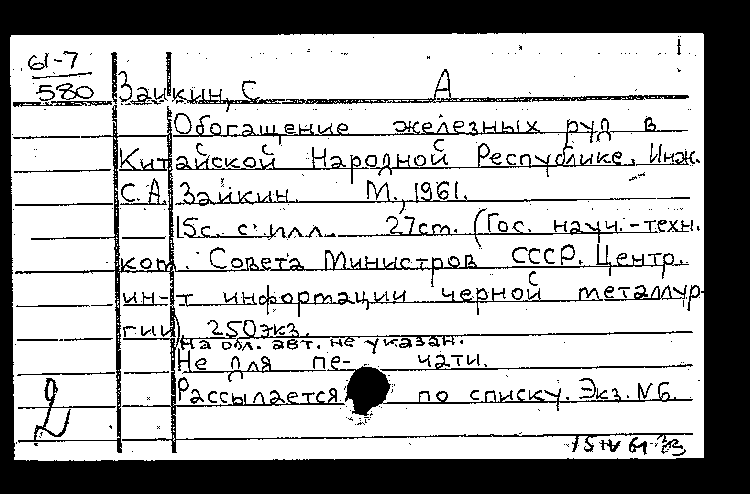 61-7
580
Заикин, С А
Обогащение железных руд в
Китайской Народной Республике. Инж.
С. А. Заикин. М., 1961.
15с. с илл. 27см. (Гос. науч.-техн.
ком. Совета Министров СССР. Центр.
ин-т информации черной металлур-
гии). 250экз.
На обл. авт. не указан.
Не для пе- чати.
Рассылается по списку. Экз. N6.
2